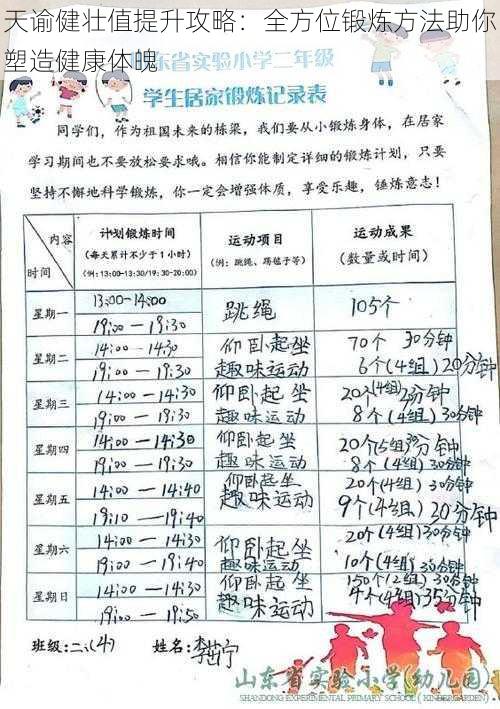 天谕健壮值提升攻略：全方位锻炼方法助你
塑造健康体魄
东省实验小学二年级
学生居家锻炼记录表
同学们，作为祖国未来的栋梁，我们要从小锻炼身体，在居家
学习期间也不要放松要求哦。相信你能制定详细的锻炼计划，只要
坚持不懈地科学锻炼，你一定会增强体质，享受乐趣，锤炼意志！
内容 时间 计划锻炼时间 运动项目 运动成果
（每天累计不少于1小时） （例：跳绳、踢毽子等） （数量或时间）
（例：13:00-13:30/19:30-20:00）
星期一 13:00-14:00 跳绳 105个
19:00-19:30
星期二 14:00-14:30 仰卧起坐 70个 30分钟
19:00-19:30 趣味运动 6个(4组) 20分钟
星期三 14:00-14:30 仰卧起坐 20个(4组) 分钟
19:00-19:30 趣味运动 8个(4组) 30分钟
星期四 14:00-14:30 仰卧起坐 20个(5组) 分钟
19:00-19:30 趣味运动 8个(4组) 30分钟
星期五 14:00-14:40 仰卧起坐 20个(4组) 30分钟
19:10-19:40 趣味运动 9个(4组) 20分钟
星期六 14:00-14:30 仰卧起坐 20个(4组) 30分钟
19:00-19:40 趣味运动 10个(4组) 30分钟
星期日 14:00-14:30 仰卧起坐 150个(2组) 30分钟
19:00-19:50 趣味运动 4个(4组) 35分钟
班级:二(4) 姓名:李芷宁
山东省实验小学(幼儿园)
SHANDONG EXPERIMENTAL PRIMARY SCHOOL ( KINDERGARDEN )